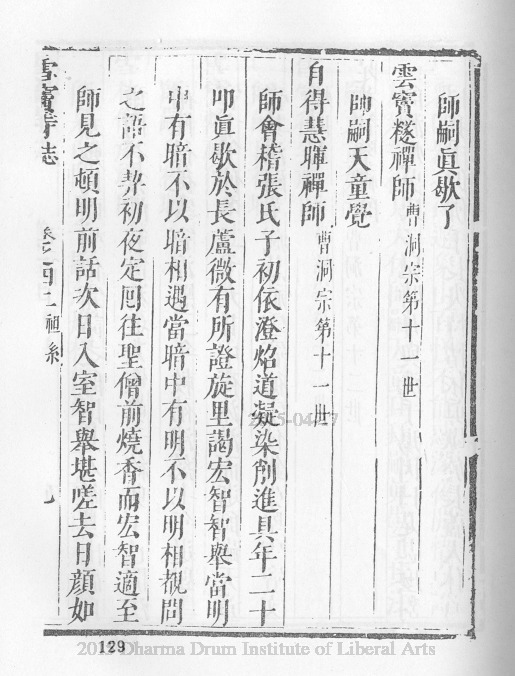 師嗣眞歇了
雲竇燧禪師 曹洞宗第十一世
師嗣天童覺
自得慧暉禪師 曹洞宗第十一世
師會稽張氏子初依澄炤道凝染削進具年二十
叩眞歇於長蘆微有所證旋里謁宏智智舉當明
中有暗不以暗相遇當暗中有明不以明相覩問
之語不契初夜定囘往聖僧前燒香而宏智適至
師見之頓明前話次日入室智舉堪嗟去日顏如
雪竇寺志 卷之四上 祖系 九
129
Dharma Drum Institute of Liberal Arts